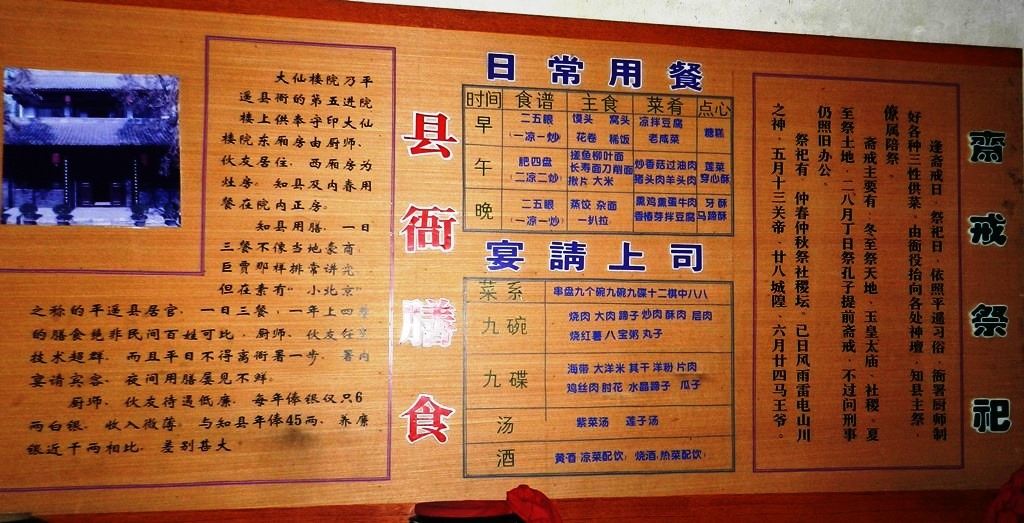 大仙楼院乃平
遥县衙的第五进院
楼上供奉守印大仙
楼院东厢房由厨师、
伙友居住，西厢房为
灶房。知县及内眷用
餐在院内正房。
知县用膳，一日
三餐不像当地豪商
巨贾那样排常讲究
但在素有“小北京”
之称的平遥县居官，一日三餐，一年上四季
的膳食绝非民间百姓可比，厨师、伙友任宝
技术超群，而且平日不得离衙署一步，署内
宴请宾客，夜间用膳屡见不鲜。
厨师、伙友待遇低廉，每年俸银仅只6
两白银，收入微薄，与知县年俸45两，养廉
银近千两相比，差别甚大
县衙膳食
日常用餐
时间 食谱 主食 菜肴 点心
早 二五眼 馍头 窝头 凉拌豆腐 糖糕
（一凉一炒） 花卷 稀饭 老咸菜
午 肥四盘 搓鱼柳叶面 炒香菇过油肉 莲菜
（二凉二炒） 长寿面刀削面 猪头肉羊头肉 穿心酥
揪片 大米
晚 二五眼 蒸饺 杂面 熏鸡熏蛋牛肉 牙酥
（一凉一炒） 一扒拉 香椿芽拌豆腐 马蹄酥
宴請上司
菜系 串盘九个碗九碗九碟十二棋中八八
九碗 烧肉 大肉 蹄子 炒肉 酥肉 层肉
烧红薯 八宝粥 丸子
九碟 海带 大洋米 其干 洋粉 片肉
鸡丝肉 肘花 水晶蹄子 瓜子
汤 紫菜汤 莲子汤
酒 黄酒（凉菜配饮） 烧酒（热菜配饮）
斋戒祭祀
逢斋戒日、祭祀日，依照平遥习俗，衙署厨师制
好各种三牲供菜，由衙役抬向各处神壇，知县主祭，
僚属陪祭。
斋戒主要有：冬至祭天地、玉皇太庙、社稷。夏
至祭土地，二八月丁日祭孔子提前斋戒，不过问刑事
仍照旧办公。
祭祀有 仲春仲秋祭社稷坛。己日风雨雷电山川
之神，五月十三关帝、廿八城隍，六月廿四马王爷。